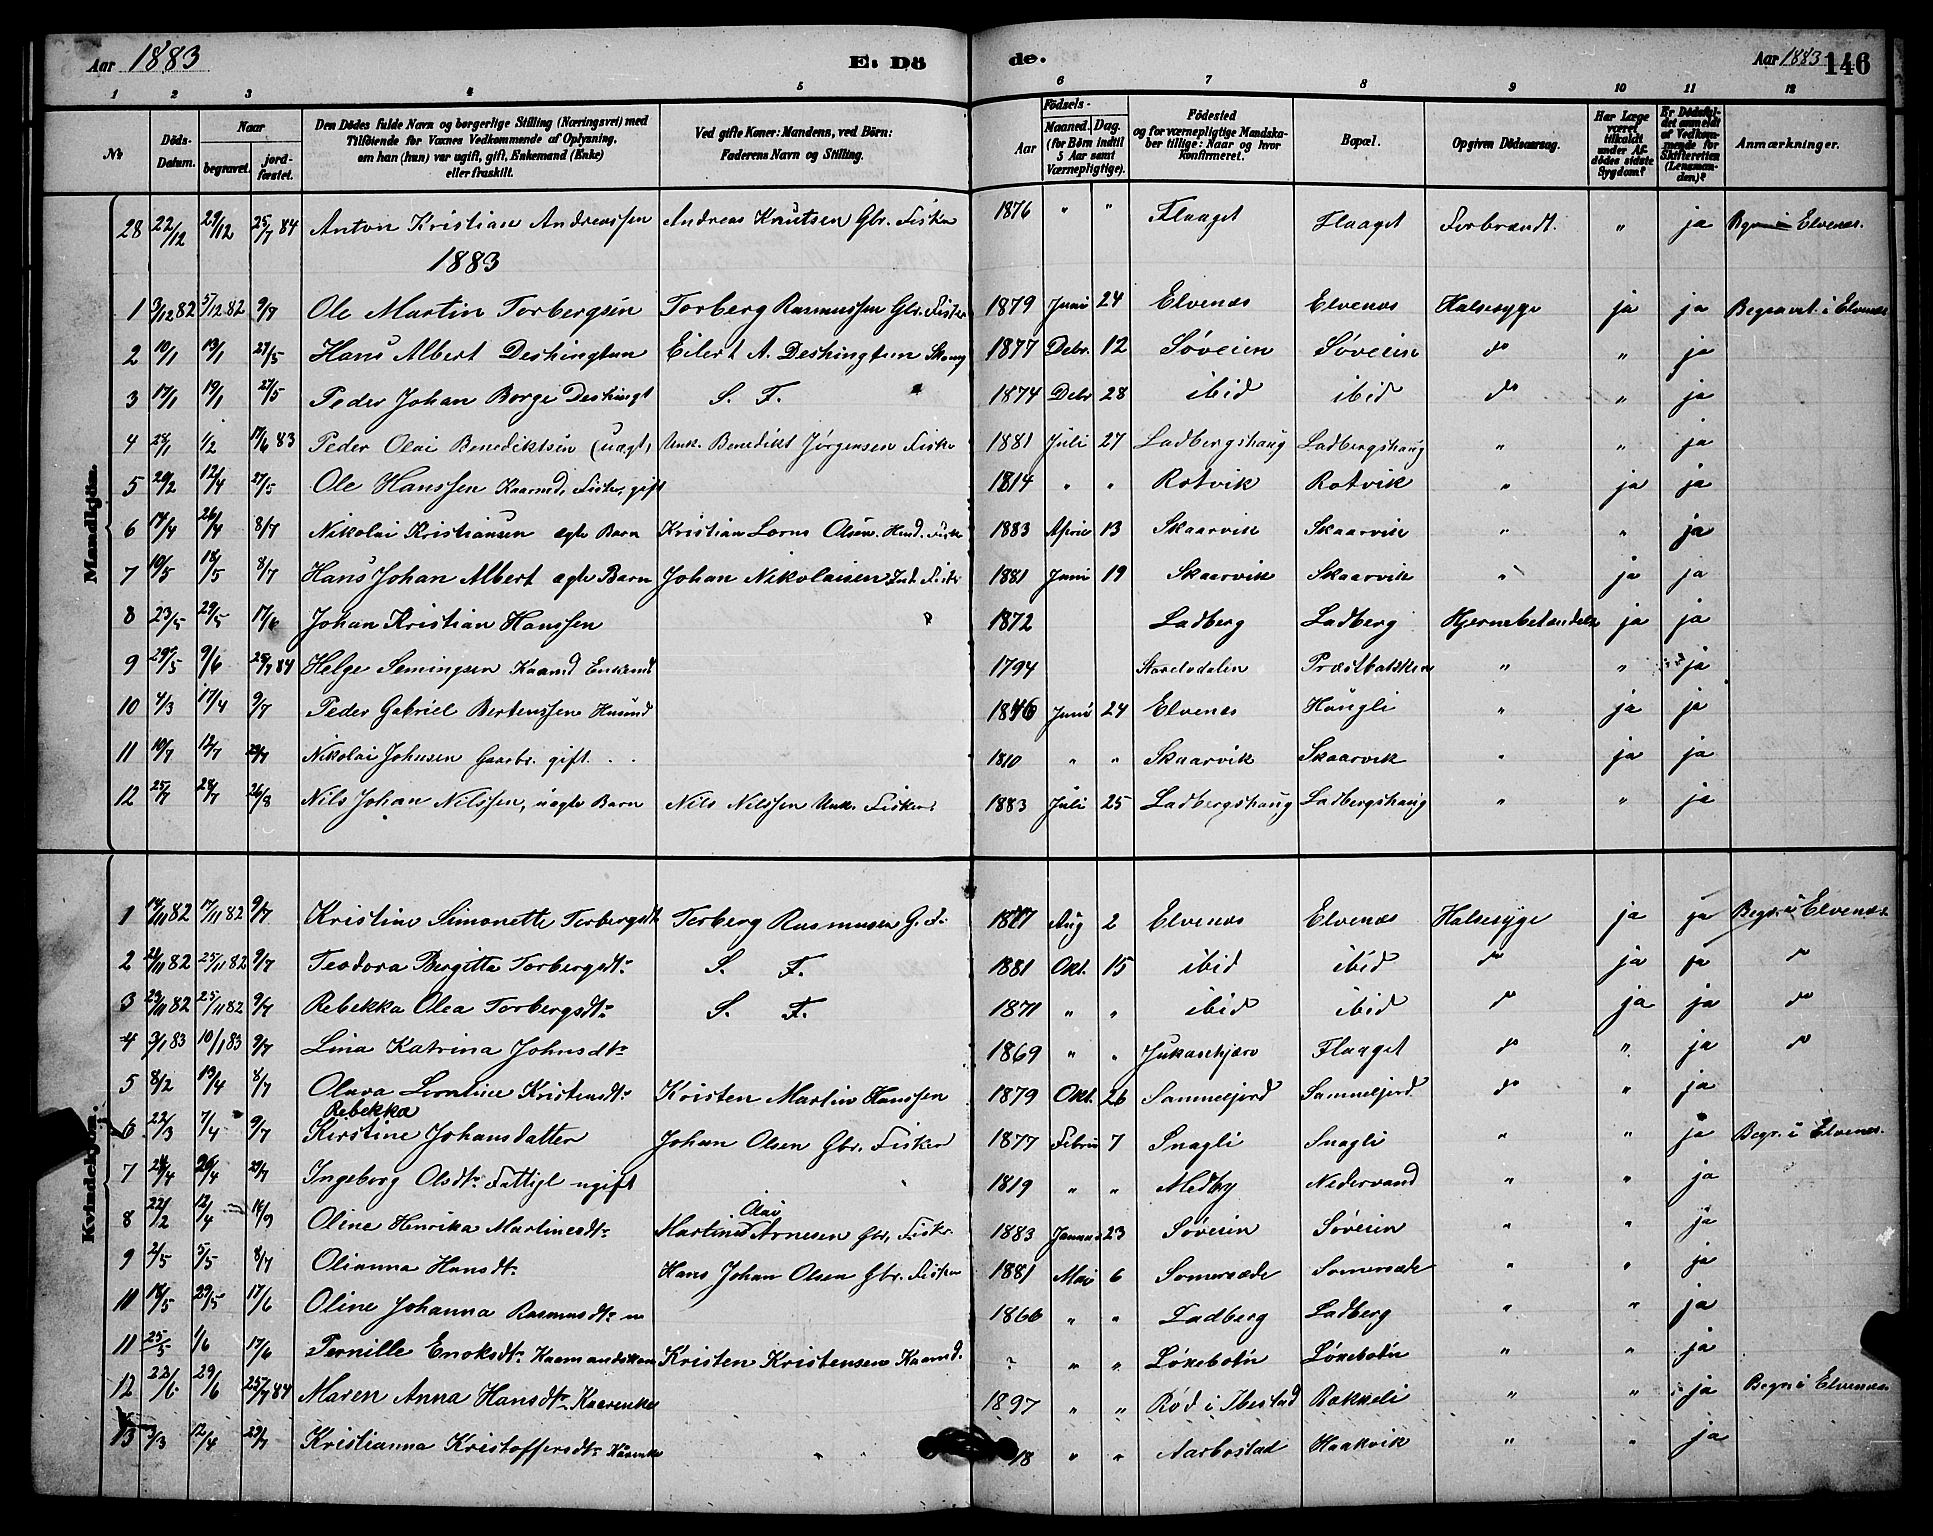 Aar 1883 E. Dö de. Aar 1883 146
1 2 3 4 5 6 7 8 9 10 11 12
No Döds-Datum. Naar begravet. jordfæstet. Den Dödes fulde Navn og borgerlige Stilling (Næringsvei) med Tilföiende for Voxnes Vedkommende af Oplysning, om han (hun) var ugift, gift, Enkemand (Enke) eller fraskilt. Ved gifte Koner: Mandens, ved Børn: Faderens Navn og Stilling. Födsels- Aar Maaned. Dag. (for Børn indtil 5 Aar samt Værnepligtige). Födested og for værnepligtige Mandskaber tillige: Naar og hvor konfirmeret. Bopæl. Opgiven Dödsaarsag. Har Læge været tilkaldt under Afdödes sidste Sygdom? Er Dödsfaldet anmeldt af Vedkommende for Skifteretten (Lensmanden)? Anmærkninger.
Mandkjön.
28 22/12 29/12 25/7 84 Anton Kristian Andreassen Andreas Knutsen Gbr. Fisker 1876 " " Flaaget Flaaget Forbrændt. " ja Elvenes.
1883
1 3/12 82 5/12 82 9/7 Ole Martin Torbergsen Torberg Rasmussen Gbr. Fisker 1879 Juni 24 Elvenes Elvenes Halsesyge ja ja Begravet i Elvenes
2 10/1 13/1 27/5 Hans Albert Deshingtun Eilert A. Deshingtun 1877 Debr. 12 Søveien Søveien do " ja
3 17/1 19/1 27/5 Peder Johan Borge Deshingt S. F. 1874 Debr 28 ibid ibid do " ja
4 28/1 1/2 17/6 83 Peder Olai Benediktsen (uægt, Unk. Benedikt Jørgensen Fisker 1881 Juli 27 Ladbergshaug Ladbergshaug " " ja
5 20/2 12/4 27/5 Ole Hanssen Kaarmd, Fisker, gift 1814 " " Rotvik Rotvik " ja ja
6 17/4 26/4 8/7 Nikolai Kristiansen ægte Barn Kristian Lorns Olsen. Fisker 1883 April 13 Skaarvik Skaarvik " " ja
7 10/5 18/5 8/7 Hans Johan Albert ægte Barn Johan Nikolaisen Ind. Fisker 1881 Juni 19 Skaarvik Skaarvik " ja ja
8 23/5 29/5 17/6 Johan Kristian Hanssen 1872 Ladberg Ladberg Hjernebetændelse ja ja
9 29/5 9/6 25/7 84 Helge Semingsen Kaarmd Enkemd 1794 Præstbakken " " ja
10 4/3 17/4 9/7 Peder Gabriel Bertenssen Husmd 1846 Juni 24 Elvenes Haugli " ja ja
11 10/7 12/7 29/7 Nikolai Johnsen Gaardbr. gift. 1810 " " Skaarvik Skaarvik " ja ja
12 25/7 28/7 26/8 Nils Johan Nilssen, uægte Barn Nils Nilssen Unk. Fisker. 1883 Juli 25 Ladbergshaug Ladbergshaug " " ja
Kvindekjön.
1 14/11 82 17/11 82 9/7 Kristine Simonette Torbergsdt Torberg Rasmussen G. Fi 1877 Aug 2 Elvenes Elvenes Halsesyge ja ja Begr. i Elvenes
2 21/11 82 25/11 82 9/7 Teodora Bergitte Torbergsdt. S. F. 1881 Okt. 15 ibid ibid do ja ja do
3 23/11 82 25/11 82 9/7 Rebekka Olea Torbergsdt. S. F. 1871 " " ibid ibid do ja ja do
4 3/1 83 10/1 83 9/7 Lina Katrina Johnsdt. 1869 " " Jukaskjærv Flaaget do " ja do
5 8/2 13/4 8/7 Olava Lorntine Kristensdt. Kristen Martin Hanssen 1879 Okt. 26 Sammelfjord Sammelfjord do " ja
Rebekka
6 22/3 7/4 9/7 Kirstine Johansdatter Johan Olsen Gbr. Fisker 1877 Febru 7 Snagli Snagli " " ja Begr. i Elvenes.
7 21/4 26/4 29/7 Ingeborg Olsdt. Fattigl ugift 1819 " " Medby Nedervand " " ja
Olai
8 22/2 12/4 16/9 Oline Henrika Martinesdt. Martinus Arnesen Gbr, Fisker. 1883 Januar 23 Søveien Søveien " " ja
9 2/5 5/5 8/7 Olianna Hansdt. Hans Johan Olsen Gbr. Fisker 1881 Mai 6 Somersæde Somersæde " " ja
10 18/5 29/5 17/6 Oline Johanna Rasmusdt. 1866 " " Ladberg Ladberg " " ja
11 25/5 1/6 17/6 Pernille Enoksdt. Kaarmandskone Kristen Kristensen Kaarmd. ? " " Løksebotn Løksebotn " " ja
12 22/6 29/6 25/7 84 Maren Anna Hansdt. Kaarenke 1897 " " Rød i Ibestad Bakkeli " " ja Begr. i Elvenes
13 3/3 12/4 29/7 Kristianna Kristoffersdt. Kaarenke " " 18 " " Aarbostad Haakvik " " ja